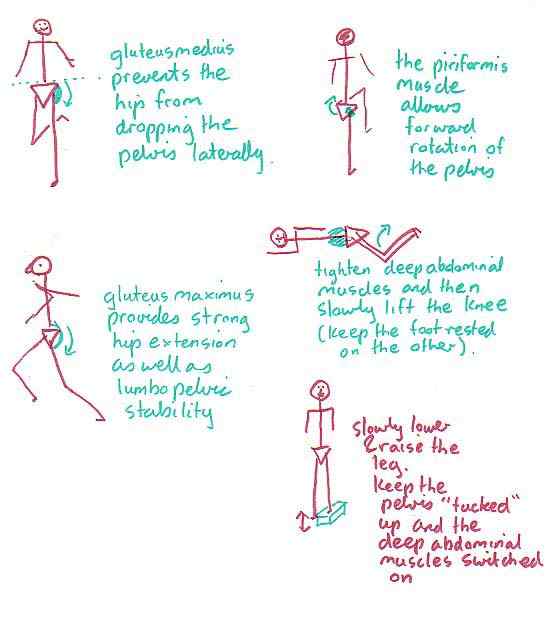 gluteus medius
prevents the
hip from
dropping the
pelvis laterally.
the piriformis
muscle
allows
forward
rotation of
the pelvis
gluteus maximus
provides strong
hip extension
as well as
lumbopelvic
stability
tighten deep abdominal
muscles and then
slowly lift the knee
(keep the foot rested
on the other).
slowly lower
& raise the
leg.
keep the
pelvis "tucked"
up and the
deep abdominal
muscles switched
on